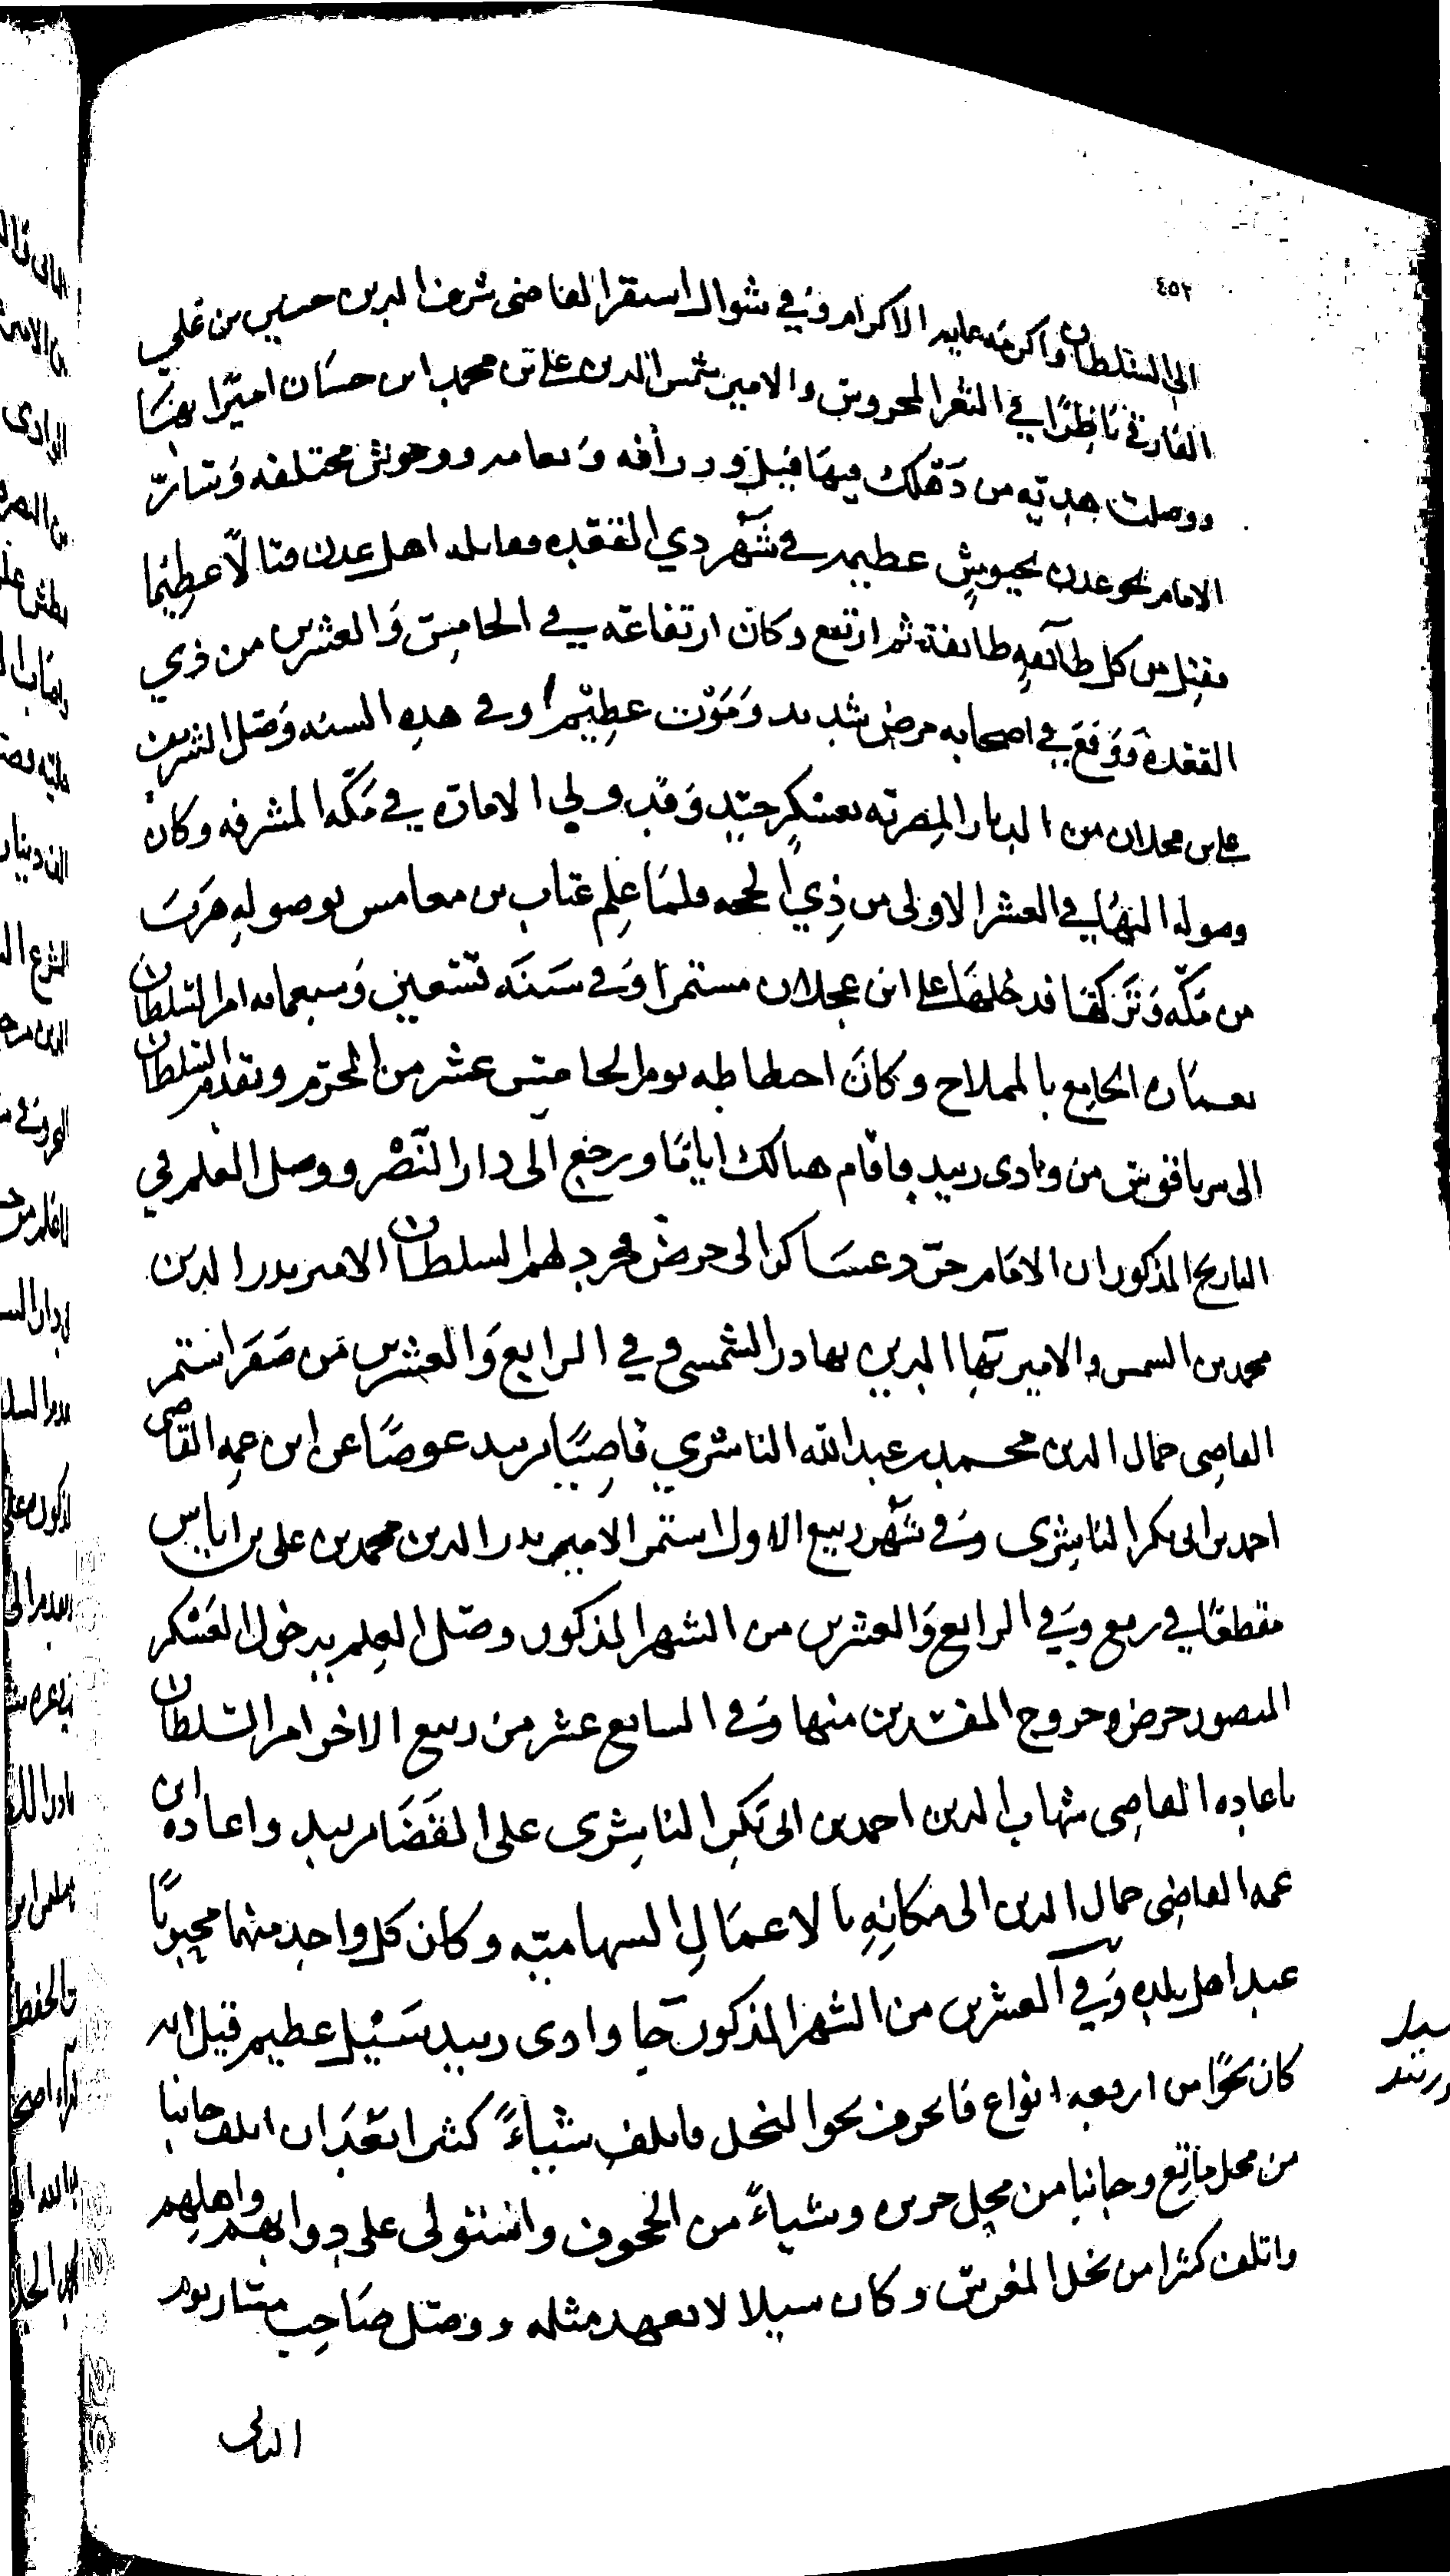 ٤٥٢
الى السلطان واكرمه عليه الاكرام وفي شوال استقر القاضى شرف الدين حسين بن علي
الفارقي ناظرًا في الثغر المحروس والامير شمس الدين على بن محمد ابن حسان اميرًا بها
ووصلت هديه من دهلك فيها فيل وزرافه ونعامه ووحوش مختلفه وسار
الامام نحو عدن بجيوش عظيمه في شهر ذي القعده فقابله اهل عدن قتالًا عظيما
فقتل من كل طائفه طائفة ثم ارتفع وكان ارتفاعه في الخامس والعشرين من ذي
القعدة ووقع في اصحابه مرض شديد وموت عظيم وفي هذه السنه وصل الشريف
على بن عجلان من الديار المصريه بعسكر جيد وقد ولي الاماره في مكه المشرفه وكان
وصوله اليها في العشر الاولى من ذي الحجه فلما علم عنان بن مغامس بوصوله هرب
من مكه وتركها فدخلها على ابن عجلان مستمرا وفي سنه تسعين وسبعمايه امر السلطان
بعماره الجامع بالمملاح وكان اختطاطه يوم الخامس عشر من المحرم وتقدم السلطان
الى سرياقوس من وادى زبيد فاقام هنالك اياما ورجع الى دار النصر ووصل العلم في
التاريخ المذكور ان الامام جرد عساكرا الى حرض فجرد لهم السلطان الامير بدر الدين
محمد بن الشمس والامير بها الدين بهادر الشمسى وفي الرابع والعشرين من صفر استمر
القاضى جمال الدين محمد بن عبد الله الناشري قاضيًا بزبيد عوضًا عن ابن عمه القاضى
احمد بن ابى بكر الناشرى وفي شهر ربيع الاول استمر الامير بدر الدين محمد بن على بن اياس
مقطعًا في ربع وفي الرابع والعشرين من الشهر المذكور وصل العلم بدخول العسكر
المنصور حرض وخروج المفسدين منها وفي السابع عشر من ربيع الاخر امر السلطان
باعاده القاضى شهاب الدين احمد بن ابى بكر الناشرى على القضا بزبيد واعاده ابن
عمه القاضى جمال الدين الى مكانه بالاعمال السهاميه وكان كل واحد منهما محبوبًا
عند اهل بلده وفي العشرين من الشهر المذكور جا وادى زبيد سيل عظيم قيل انه
كان نحوًا من اربعه انواع فانحرف نحو النخل فاتلف شياءً كثيرا بعد ان اتلف جانبا
من محل مانع وجانبا من محل حرس وشياءً من الجحوف واستولى على دوابهم واهلهم
واتلف كثيرا من نخل المغرس وكان سيلا لا يعهد مثله ووصل صاحب مسار يوم
الثالى
سيل